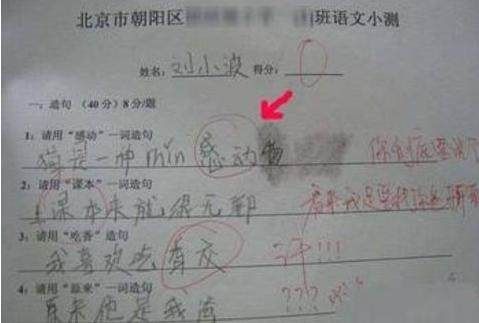 北京市朝阳区 班语文小测
姓名：刘小波 得分：0
一：造句（40分）8分/题
1：请用“感动”一词造句
猫是一种min感动物
2：请用“课本”一词造句
上课本来就很无聊
看来我是
3：请用“吃香”造句
我喜欢吃香蕉 汗!!!
4：请用“原来”一词造句
原来他是我爸 ???